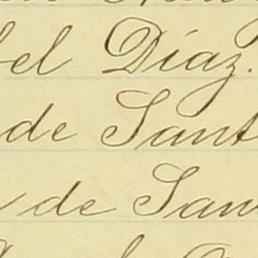 bel Díaz.
de Sant
de San